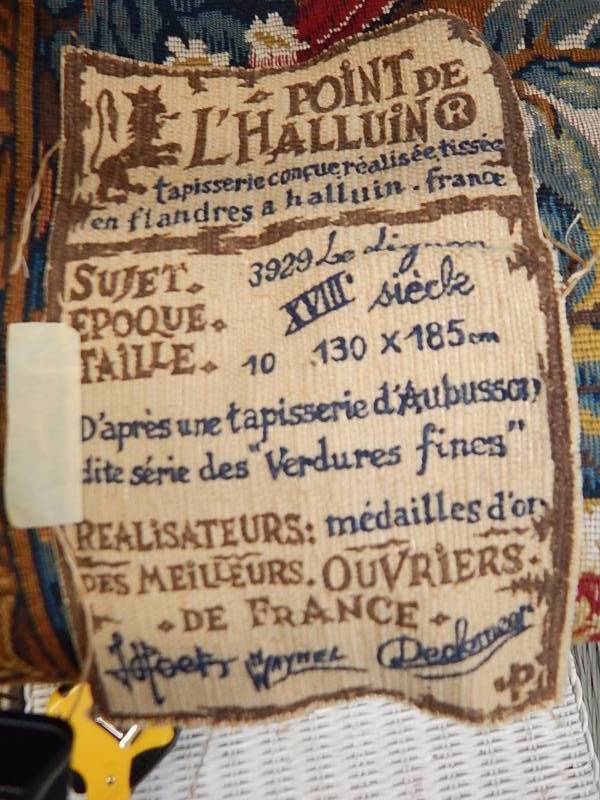 POINT DE
L'HALLUIN®
tapisserie conçue, réalisée, tissée
en flandres a halluin . france
SUJET. 3929 Le
EPOQUE. XVIII siècle
TAILLE. 10 130 x 185cm
D'après une tapisserie d'Aubusson
dite série des "Verdures fines"
REALISATEURS: médailles d'or
DES MEILLEURS. OUVRIERS.
DE FRANCE
P